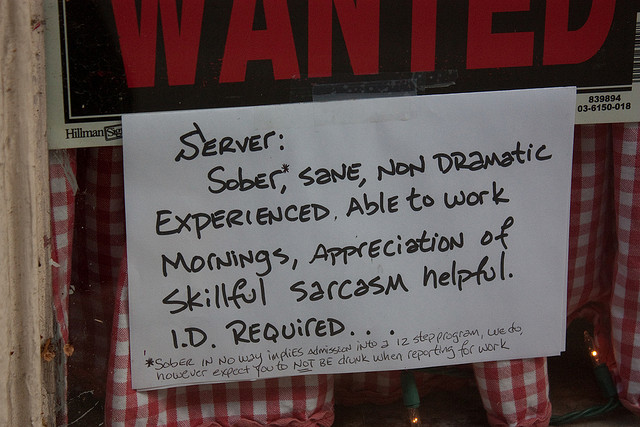 WANTED
Hillman Sig
839894
03-6150-018
SERVER:
Sober,* SANE, NON DRamatic
EXPERIENCED, Able to work
MORNINGS, APPRECIATION of
Skillful sarcasm helpful.
I.D. REQUIRED...
*SOBER IN NO way impliEs admission into a 12 step program, we do,
however expect you to NOT BE drunk when reporting for work